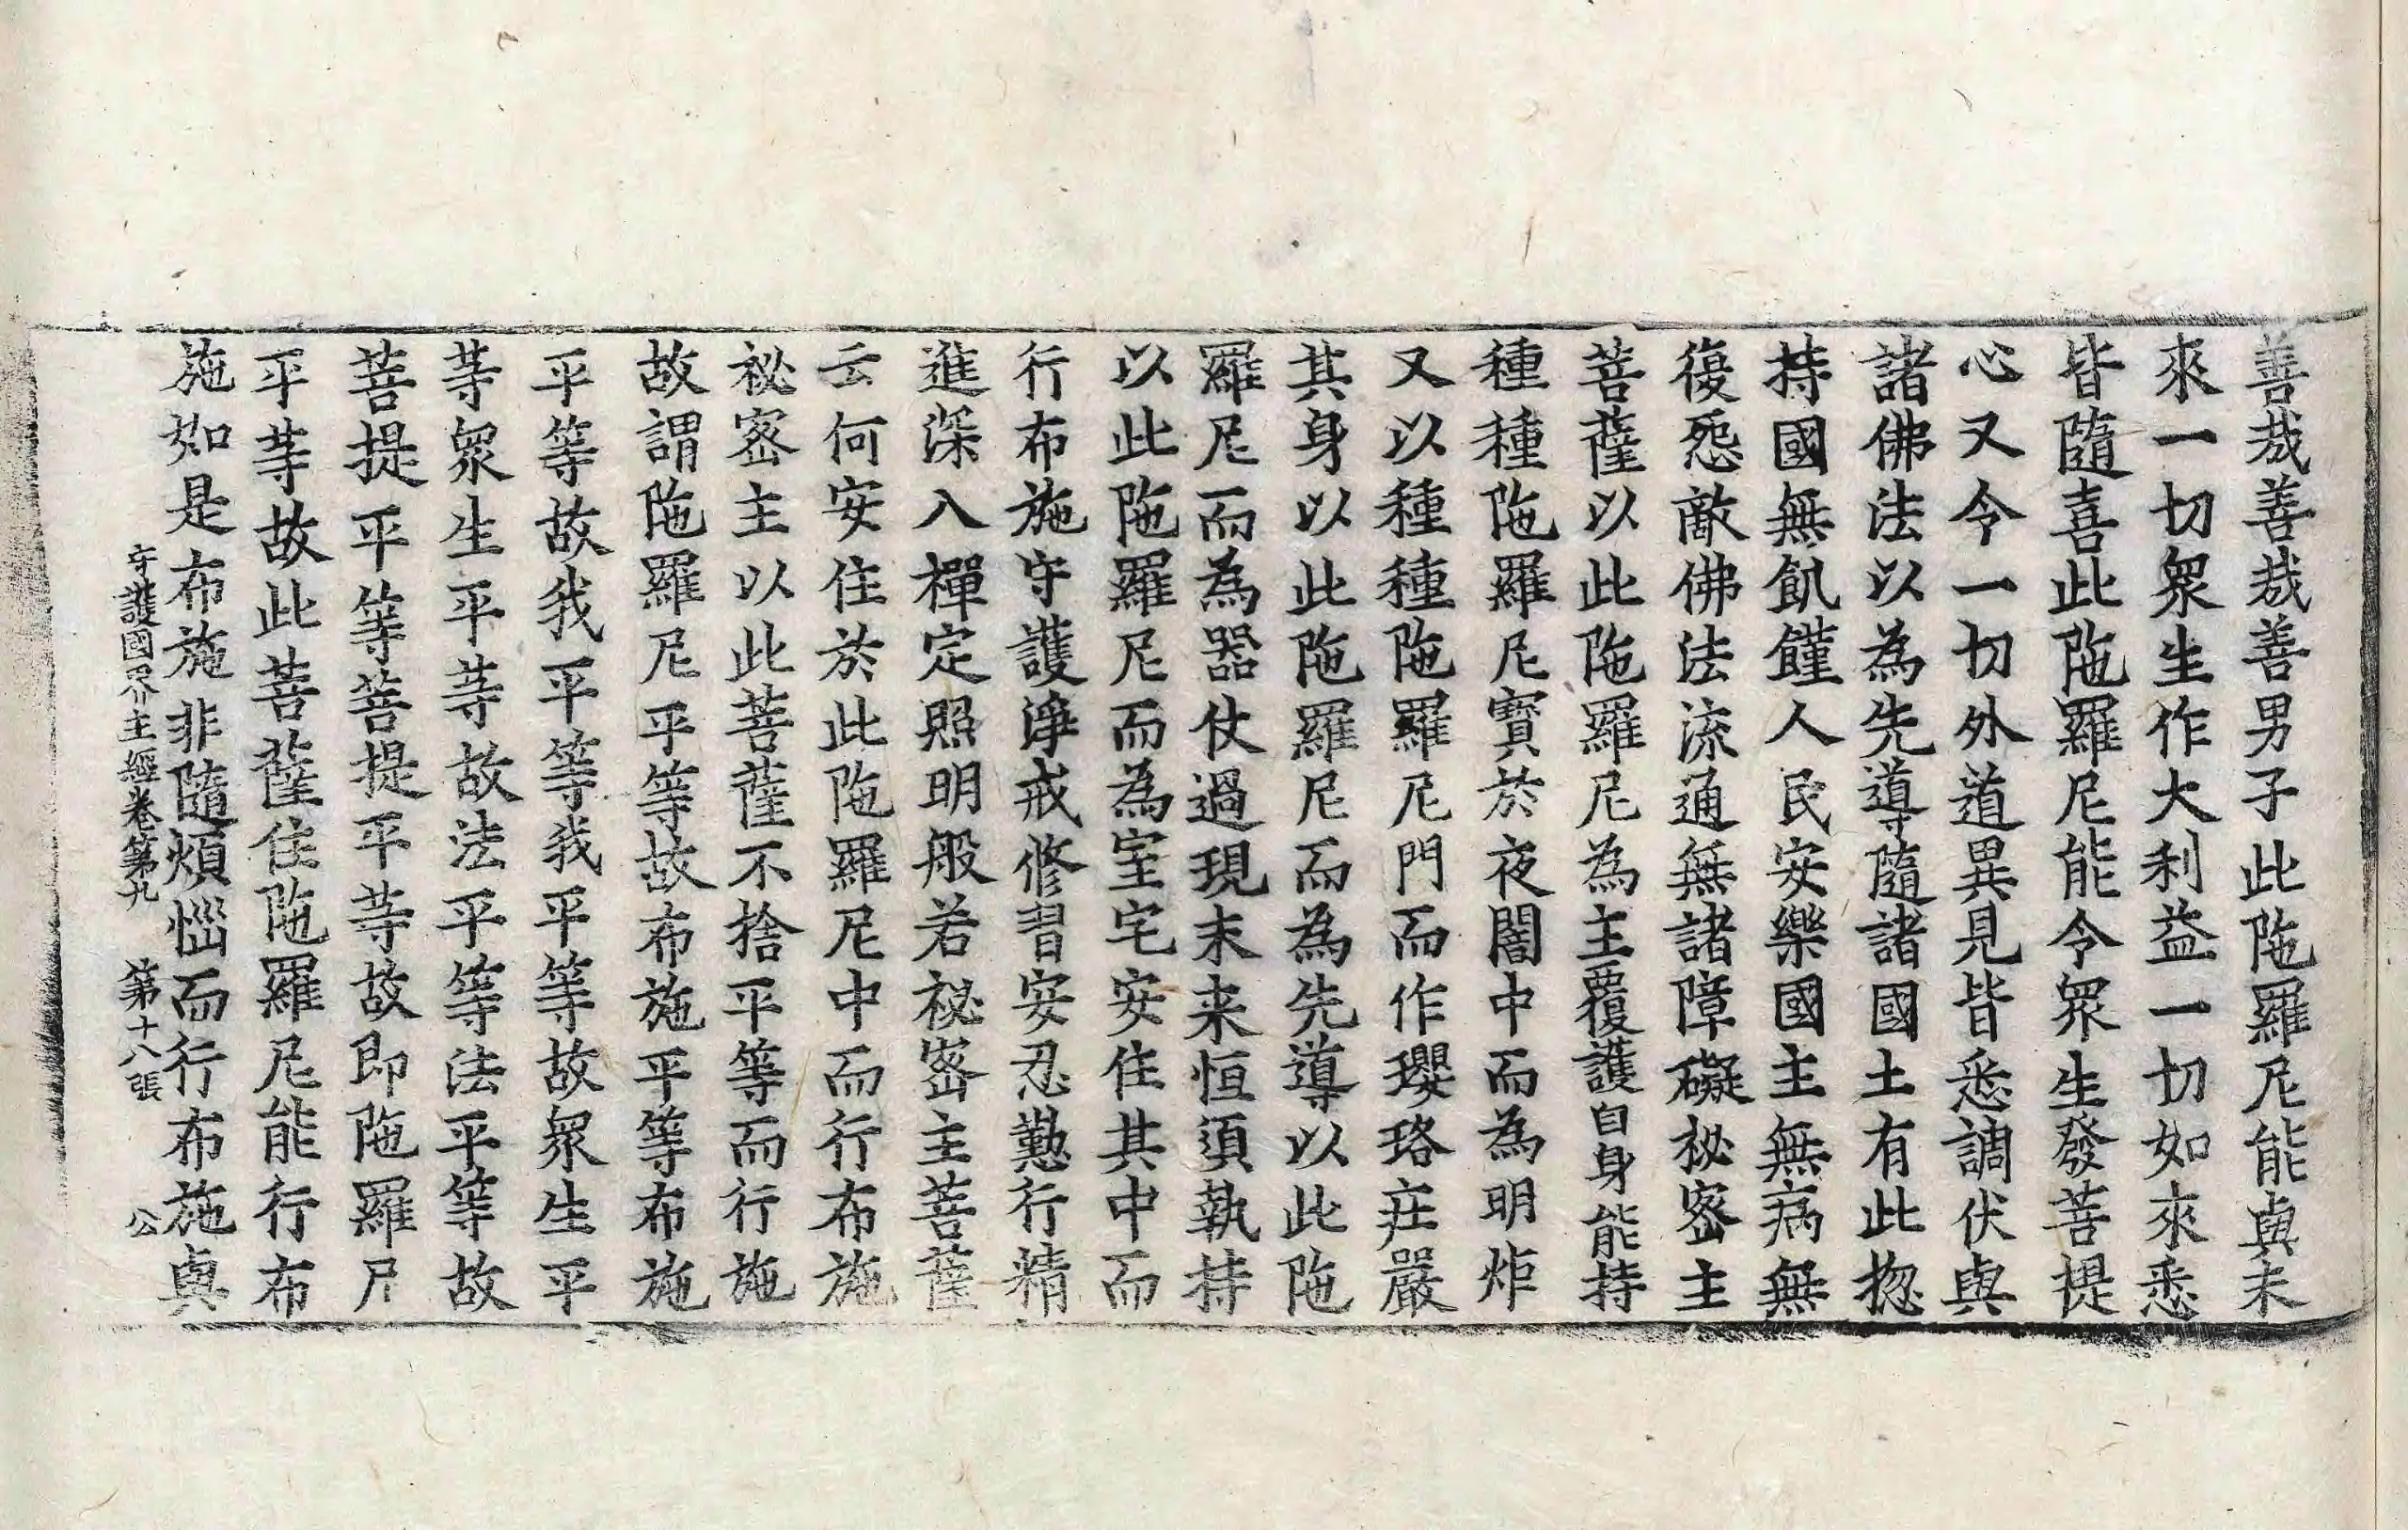 善哉善哉善男子此陁羅尼能與未
來一切衆生作大利益一切如來悉
皆隨喜此陁羅尼能令衆生發菩提
心又令一切外道異見皆悉調伏與
諸佛法以為先導隨諸國土有此揔
持國無飢饉人民安樂國主無病無
復怨敵佛法流通無諸障礙秘密主
菩薩以此陁羅尼為主覆護自身能持
種種陁羅尼寶於夜闇中而為明炬
又以種種陁羅尼門而作瓔珞莊嚴
其身以此陁羅尼而為先導以此陁
羅尼而為器仗過現未来恒須執持
以此陁羅尼而為室宅安住其中而
行布施守護淨戒修習安忍懃行精
進深入禪定照明般若祕密主菩薩
云何安住於此陁羅尼中而行布施
祕密主以此菩薩不捨平等而行施
故謂陁羅尼平等故布施平等布施
平等故我平等我平等故衆生平
等衆生平等故法平等法平等故
菩提平等菩提平等故即陁羅尼
平等故此菩薩住陁羅尼能行布
施如是布施非隨煩惱而行布施與
守護國界主經卷第九 第十八張 公